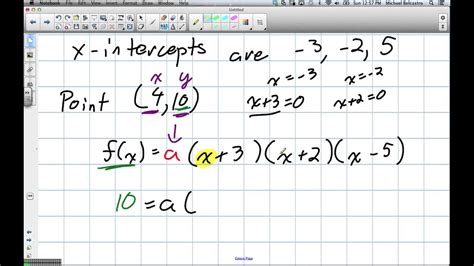 Notebook File Edit View Insert Format
Sun 12:57 PM Michael Belcastro
Untitled
x-intercepts are -3, -2, 5
x y x=-3 x=-2
Point (4,10) x+3=0 x+2=0
f(x) = a(x+3)(x+2)(x-5)
10 = a(
Extend Page